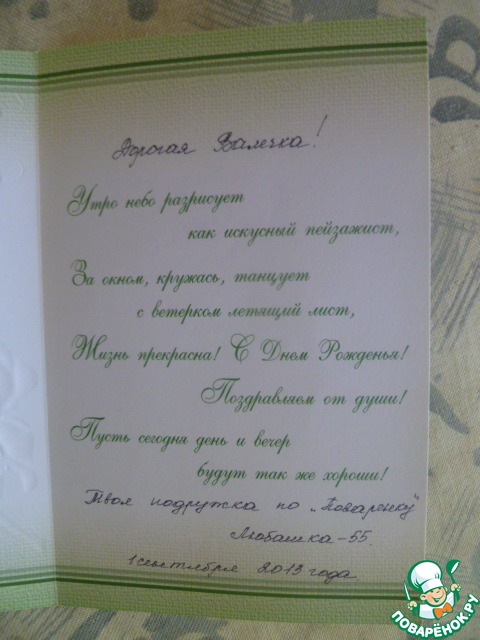 Дорогая Валечка!
Утро небо разрисует
как искусный пейзажист,
За окном, кружась, танцует
с ветерком летящий лист,
Жизнь прекрасна! С Днем Рожденья!
Поздравляем от души!
Пусть сегодня день и вечер
будут так же хороши!
Твоя подружка по „Поваренку"
Любашка-55.
1 сентября 2013 года
ПОВАРЁНОК.РУ